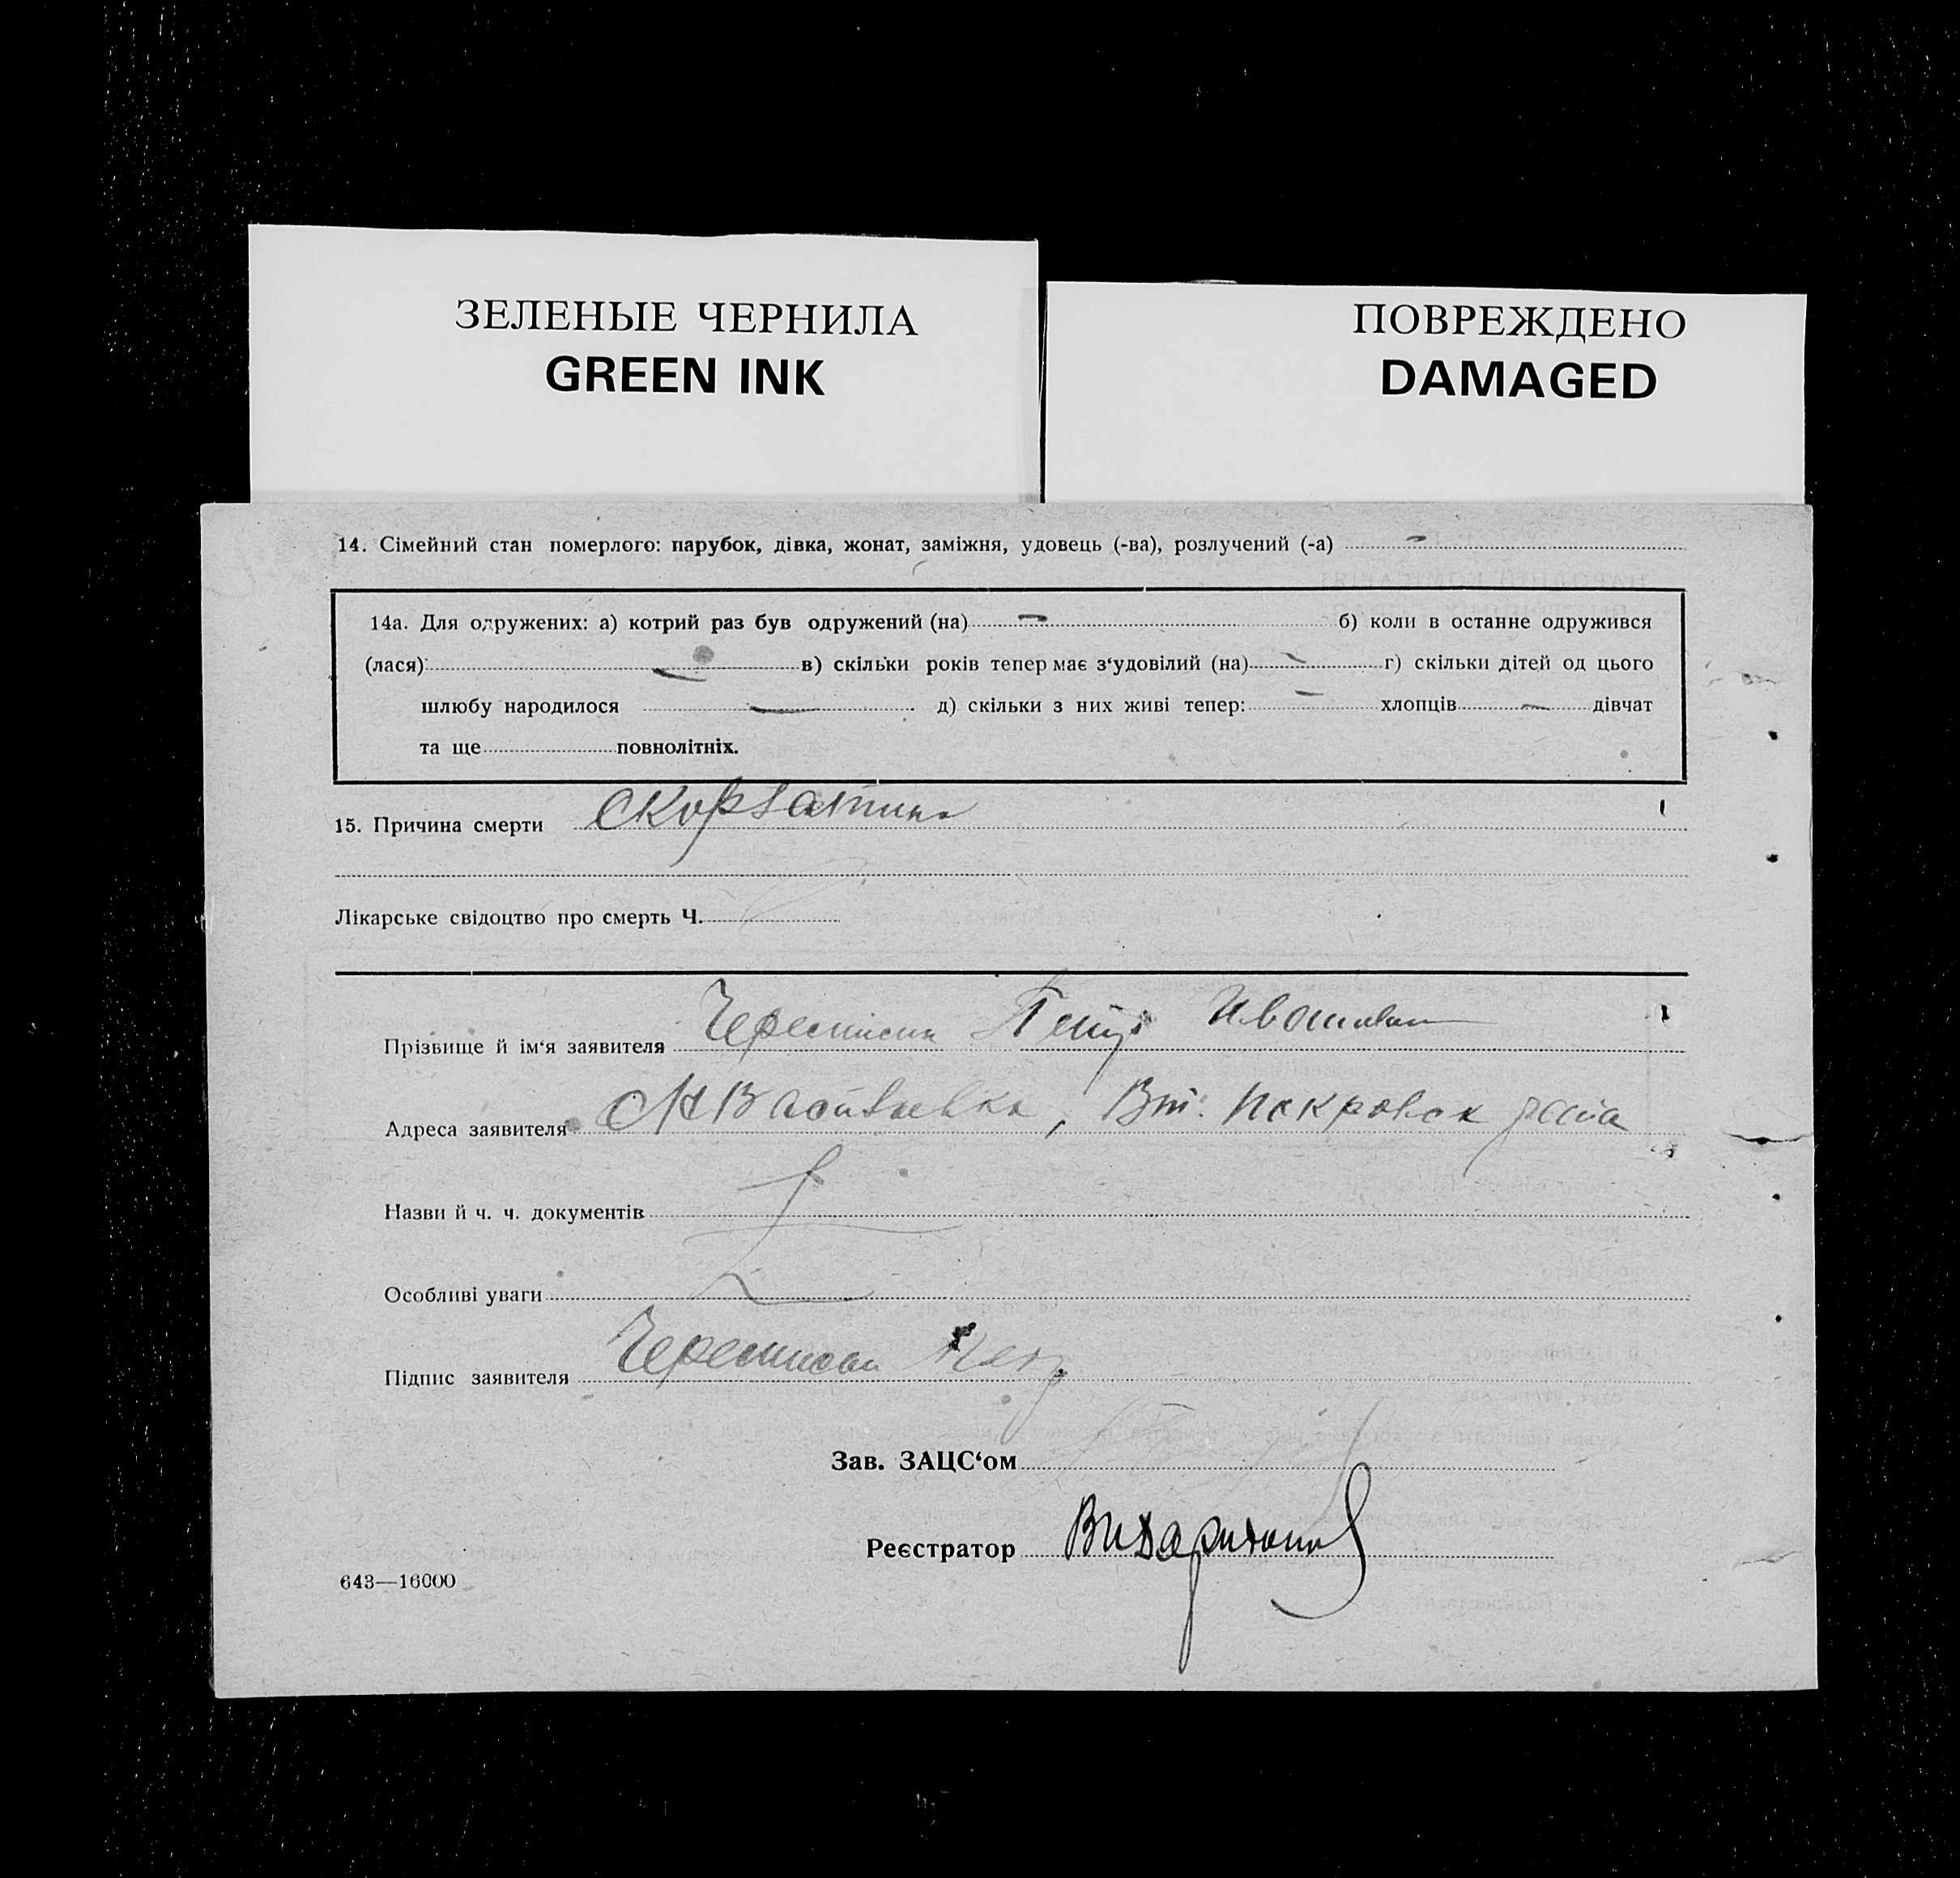 ЗЕЛЕНЫЕ ЧЕРНИЛА
GREEN INK
ПОВРЕЖДЕНО
DAMAGED
14. Сімейний стан померлого: парубок, дівка, жонат, заміжня, удовець (-ва), розлучений (-а) –
14а. Для одружених: а) котрий раз був одружений (на) – б) коли в останне одружився
(лася) – в) скільки років тепер має з‘удовілий (на) – г) скільки дітей од цього
шлюбу народилося – д) скільки з них живі тепер: – хлопців – дівчат
та ще повнолітніх.
15. Причина смерти Скорлатина
Лікарське свідоцтво про смерть Ч.
Прізвище й ім‘я заявителя Черемисин Петр Иванович
Адреса заявителя Покровск
Назви й ч. ч. документів
Особливі уваги
Підпис заявителя Черемисин Петр
Зав. ЗАЦС‘ом
Реєстратор
643—16000